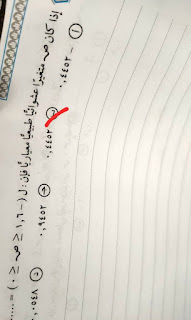 إذا كان ص متغيرًا عشوائيًا طبيعيًا معياريًا فإن : ل ( − ١,٦ ≤ ص ≤ ٠ ) = ......
أ − ٠,٤٤٥٢ ب ٠,٤٤٥٢ ج ٠,٩٤٥٢ د ٠,٠٥٤٨